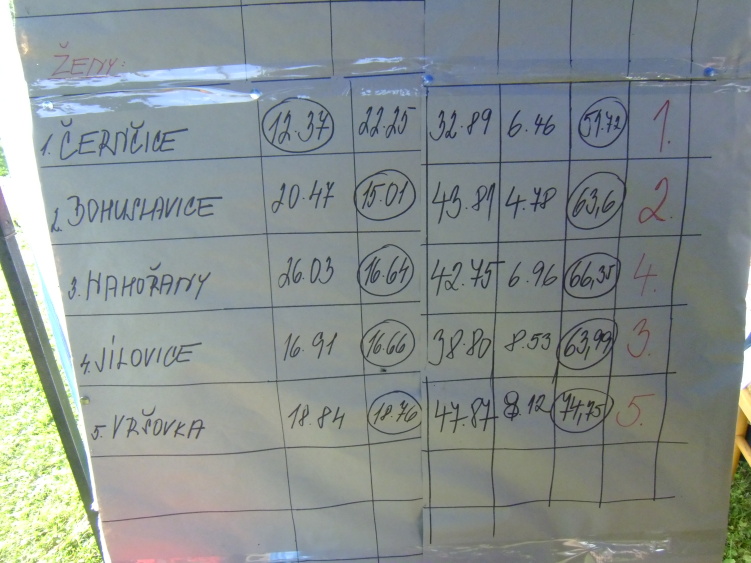 ŽENY:
1. ČERNČICE 12.37 22.25 32.89 6.46 51.72 1.
2. BOHUSLAVICE 20.47 15.01 43.81 4.78 63,6 2.
3. NAHOŘANY 26.03 16.64 42.75 6.96 66,35 4.
4. JÍLOVICE 16.91 16.66 38.80 8.53 63,99 3.
5. VRŠOVKA 18.84 18.76 47.87 8.12 74,75 5.